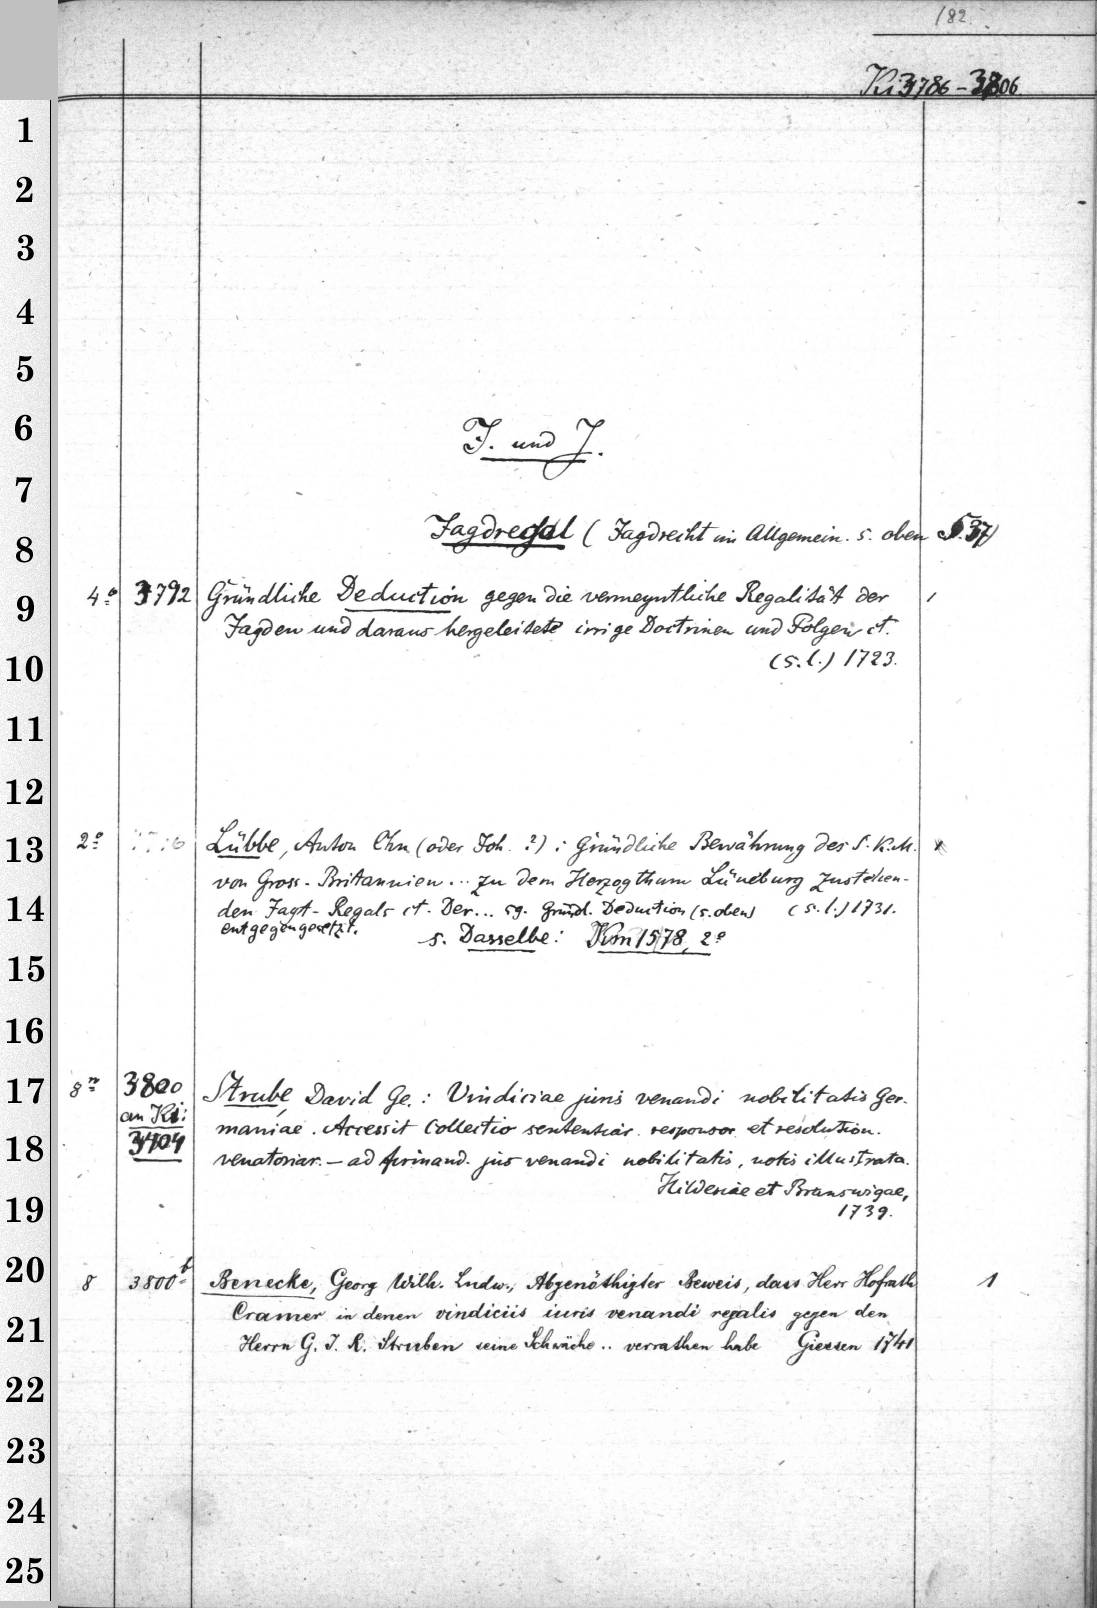 182.
Ki 3786-3806
1
2
3
4
5
6
I. und J.
7
Jagdregal ( Jagdrecht im Allgemein. s. oben S. 37)
8
4º 3792 Gründliche Deduction gegen die vermeyntliche Regalität der
9
Jagden und daraus hergeleitete irrige Doctrinen und Folgen ct.
(s. l.) 1723.
10
11
12
2º Lübbe, Anton Chn (oder Joh. ?) : Gründliche Bewährung des S. K. M.
13
von Gross-Britannien... zu dem Herzogthum Lüneburg zustehen-
den Jagt-Regals ct. Der... sg. Gründl. Deduction (s. oben) (s. l.) 1731.
14
entgegengesetzt.
s. Dasselbe: Km 1578, 2º
15
16
8º 3800 Strube, David Ge. : Vindiciae juris venandi nobilitatis Ger-
17
an Ki:
maniae. Accessit Collectio sententiar. responsor et resolution.
3404
18
venatoriar. — ad jus venandi nobilitatis, notis illustrata.
Hildesiae et Brunswigae,
19
1739.
20
8 3800b Benecke, Georg Wilh. Ludw., Abgenöthigter Beweis, dass Herr Hofrath 1
Cramer in denen vindiciis iuris venandi regalis gegen den
21
Herrn G. J. R. Struben seine Schwäche .. verrathen habe Giessen 1741
22
23
24
25